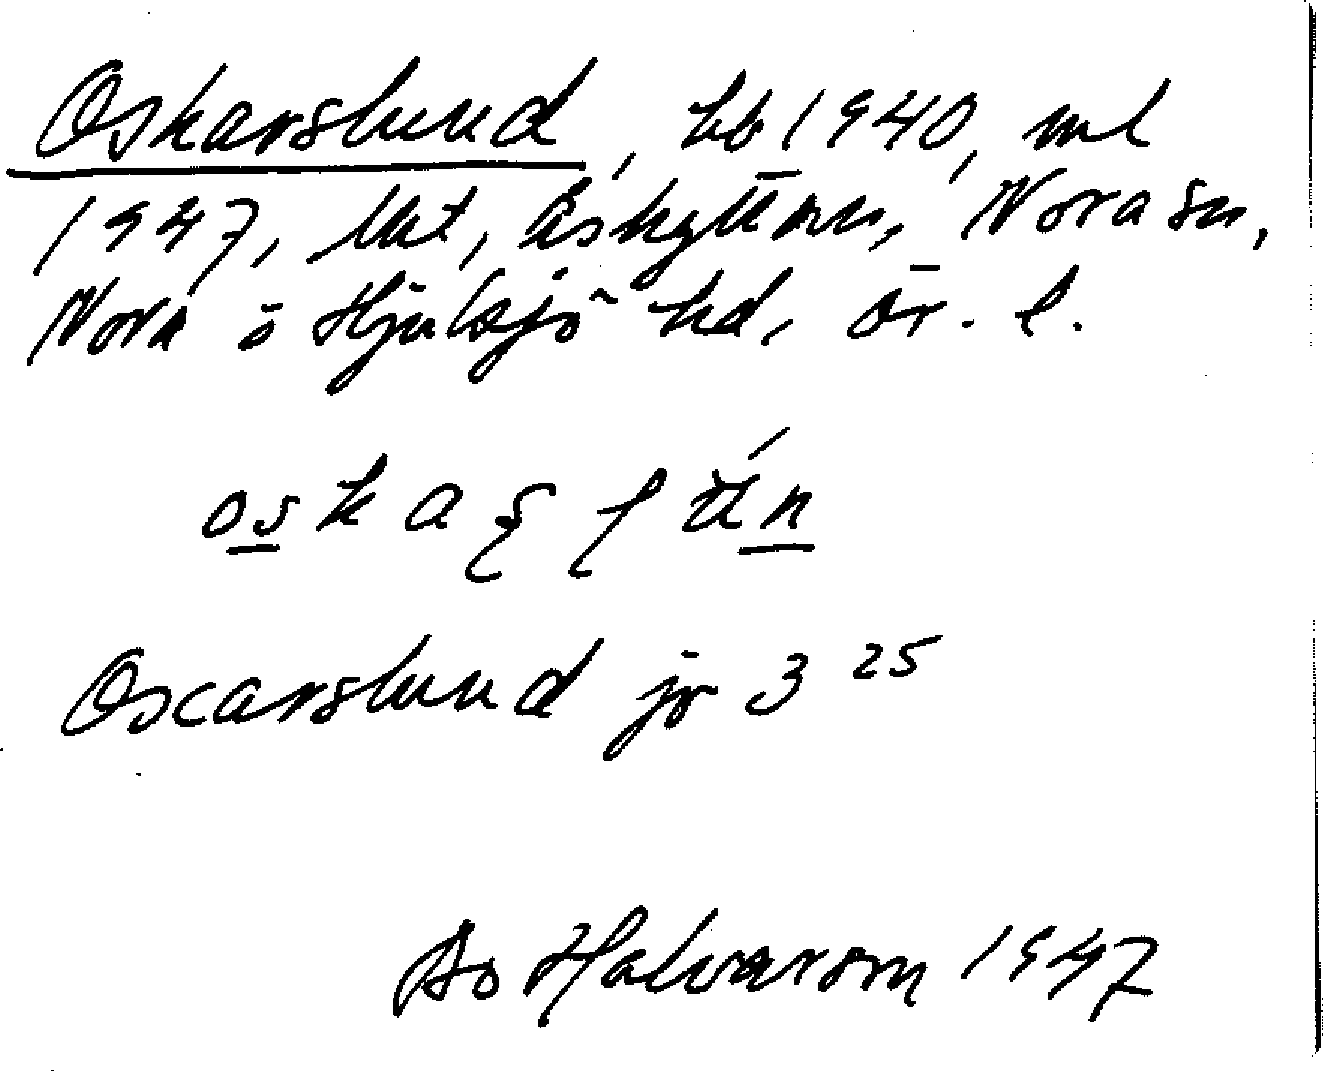 Oskarslund, bb 1940, ml
1947, lht, Åskyttan, Nora sn,
Nora o Hjulsjö hd, Ör. l.
Oscarslund jr 3 25
Bo Halvarson 1947